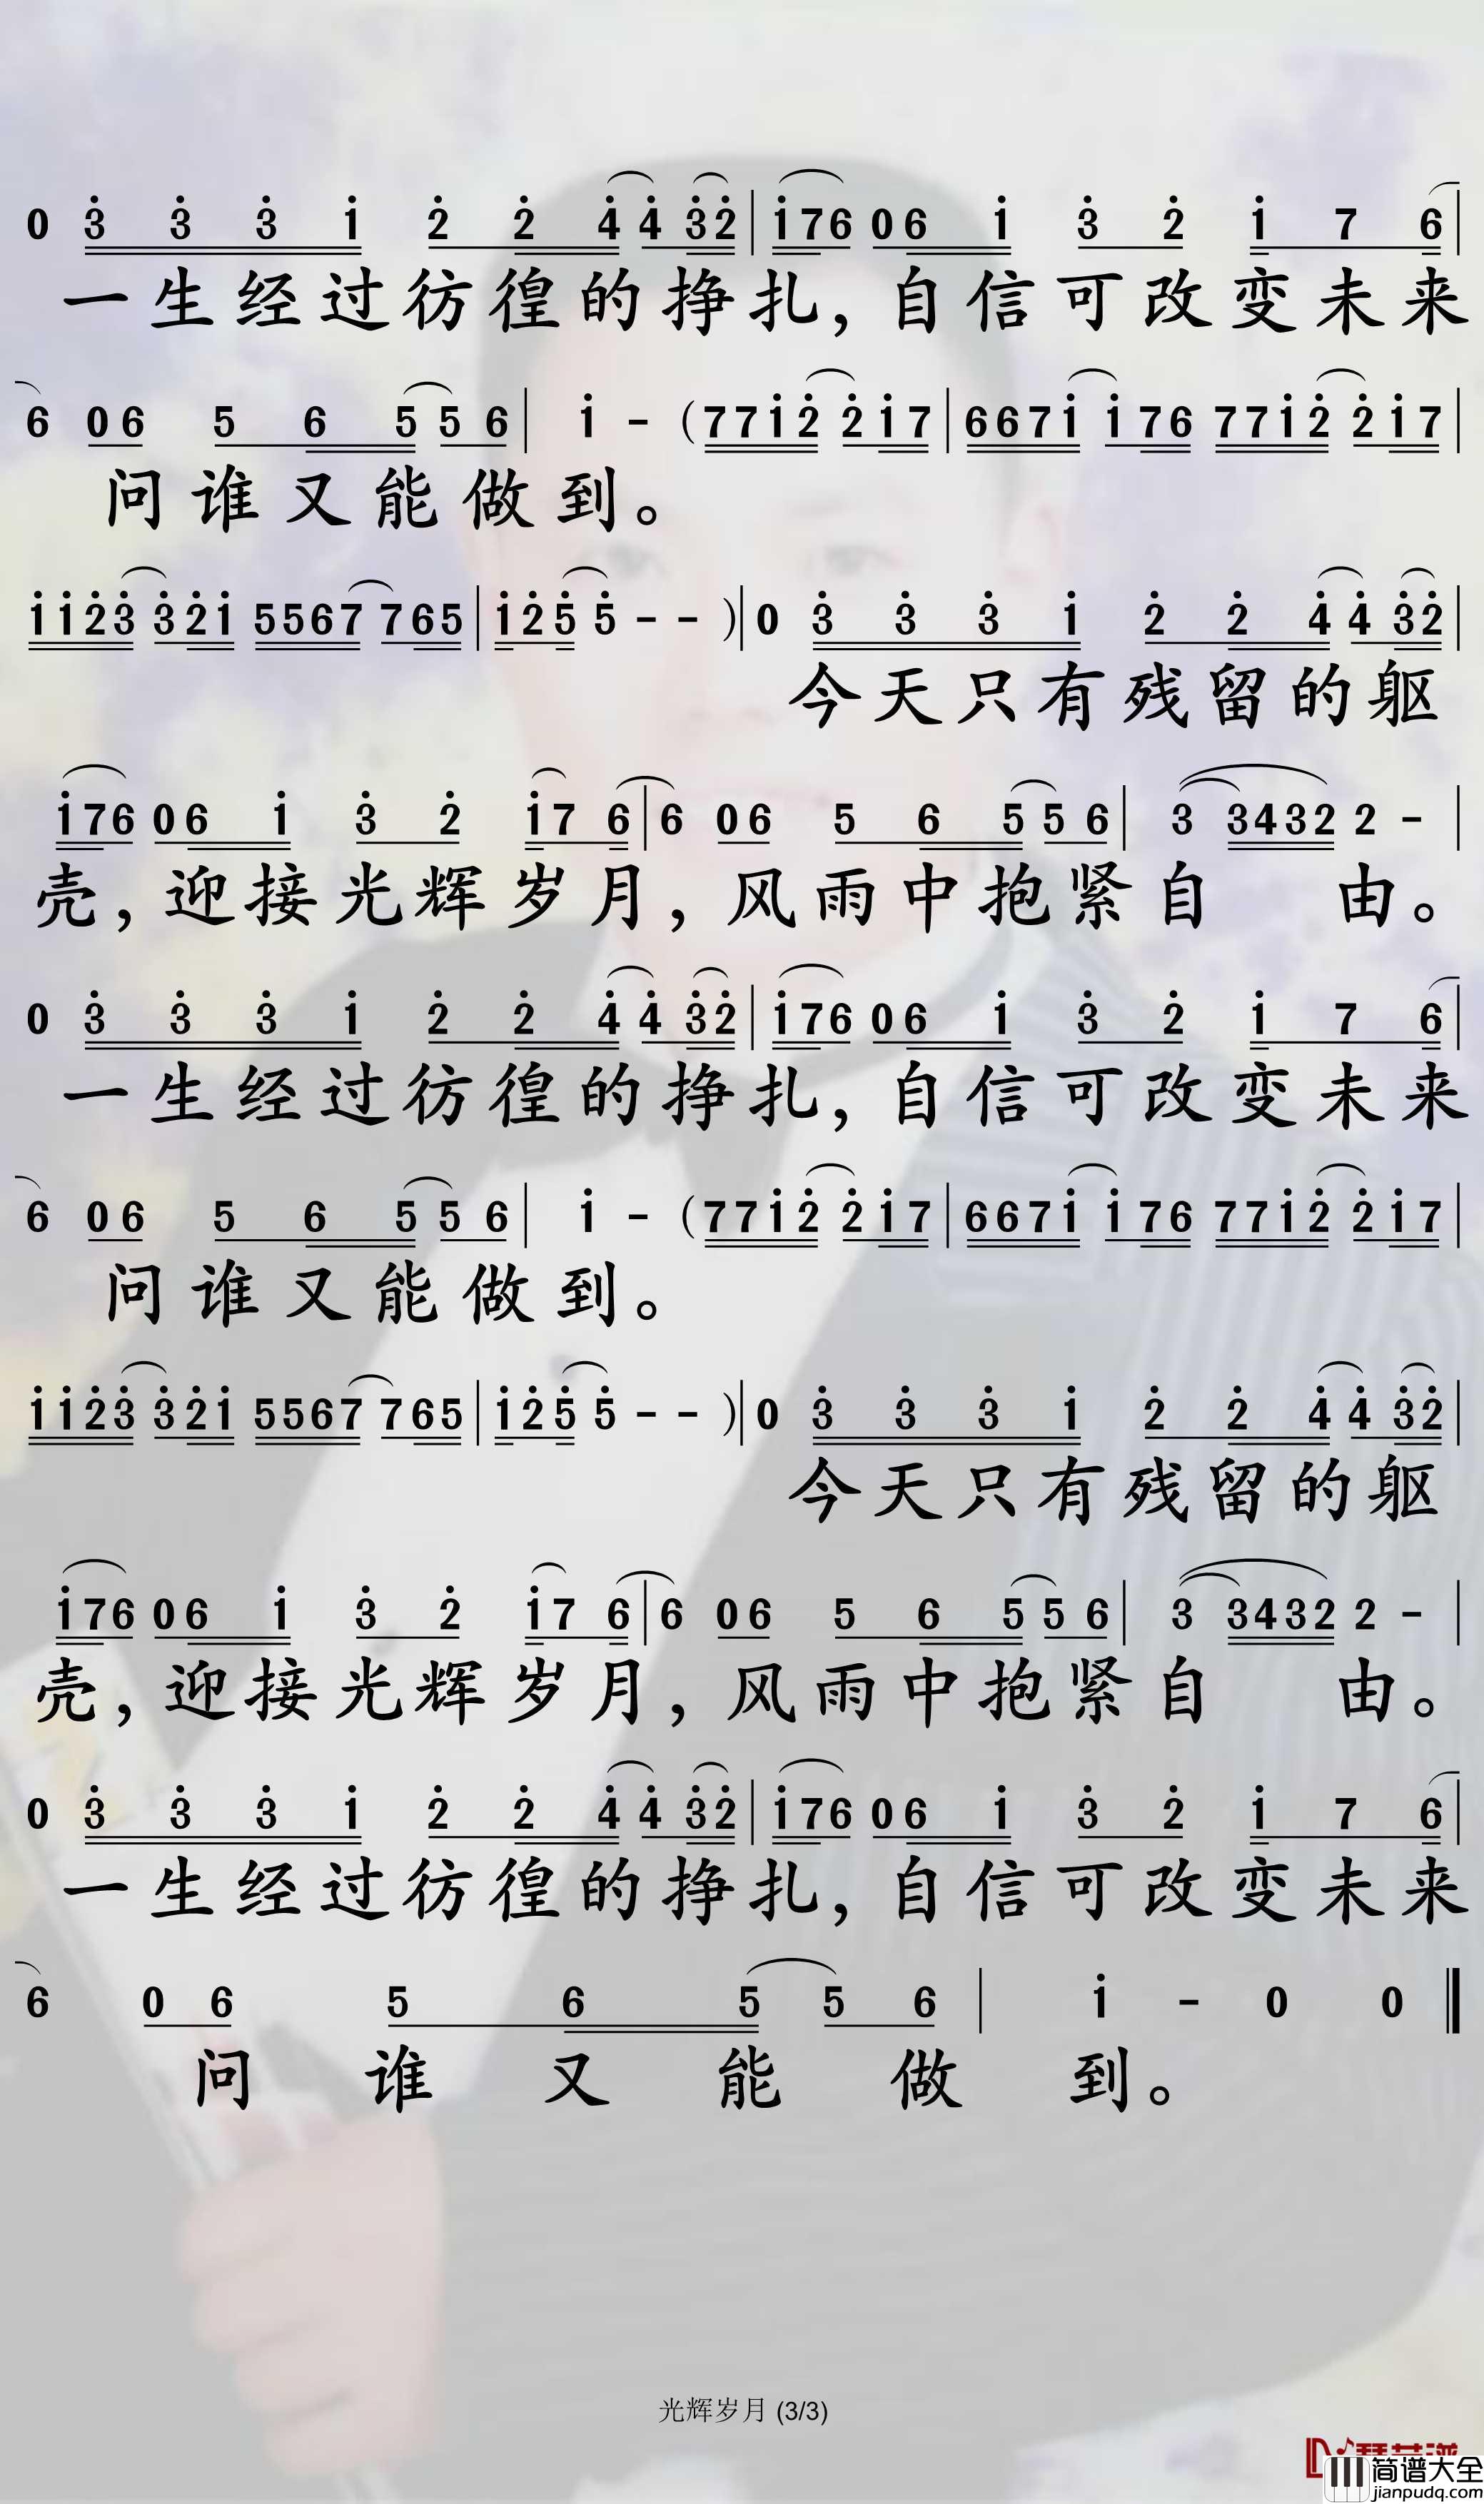 0 3 3 3 1 2 2 4 4 3 2 | 1 7 6 0 6 1 3 2 1 7 6 |
一生经过彷徨的挣扎，自信可改变未来
6 0 6 5 6 5 5 6 | 1 - (7 7 1 2 2 1 7 | 6 6 7 1 1 7 6 7 7 1 2 2 1 7 |
问谁又能做到。
1 1 2 3 3 2 1 5 5 6 7 7 6 5 | 1 2 5 5 - - ) | 0 3 3 3 1 2 2 4 4 3 2 |
今天只有残留的躯
1 7 6 0 6 1 3 2 1 7 6 | 6 0 6 5 6 5 5 6 | 3 3 4 3 2 2 - |
壳，迎接光辉岁月，风雨中抱紧自 由。
0 3 3 3 1 2 2 4 4 3 2 | 1 7 6 0 6 1 3 2 1 7 6 |
一生经过彷徨的挣扎，自信可改变未来
6 0 6 5 6 5 5 6 | 1 - (7 7 1 2 2 1 7 | 6 6 7 1 1 7 6 7 7 1 2 2 1 7 |
问谁又能做到。
1 1 2 3 3 2 1 5 5 6 7 7 6 5 | 1 2 5 5 - - ) | 0 3 3 3 1 2 2 4 4 3 2 |
今天只有残留的躯
1 7 6 0 6 1 3 2 1 7 6 | 6 0 6 5 6 5 5 6 | 3 3 4 3 2 2 - |
壳，迎接光辉岁月，风雨中抱紧自 由。
0 3 3 3 1 2 2 4 4 3 2 | 1 7 6 0 6 1 3 2 1 7 6 |
一生经过彷徨的挣扎，自信可改变未来
6 0 6 5 6 5 5 6 | 1 - 0 0
问谁又能做到。
光辉岁月 (3/3)
简谱大全
jianpudq.com